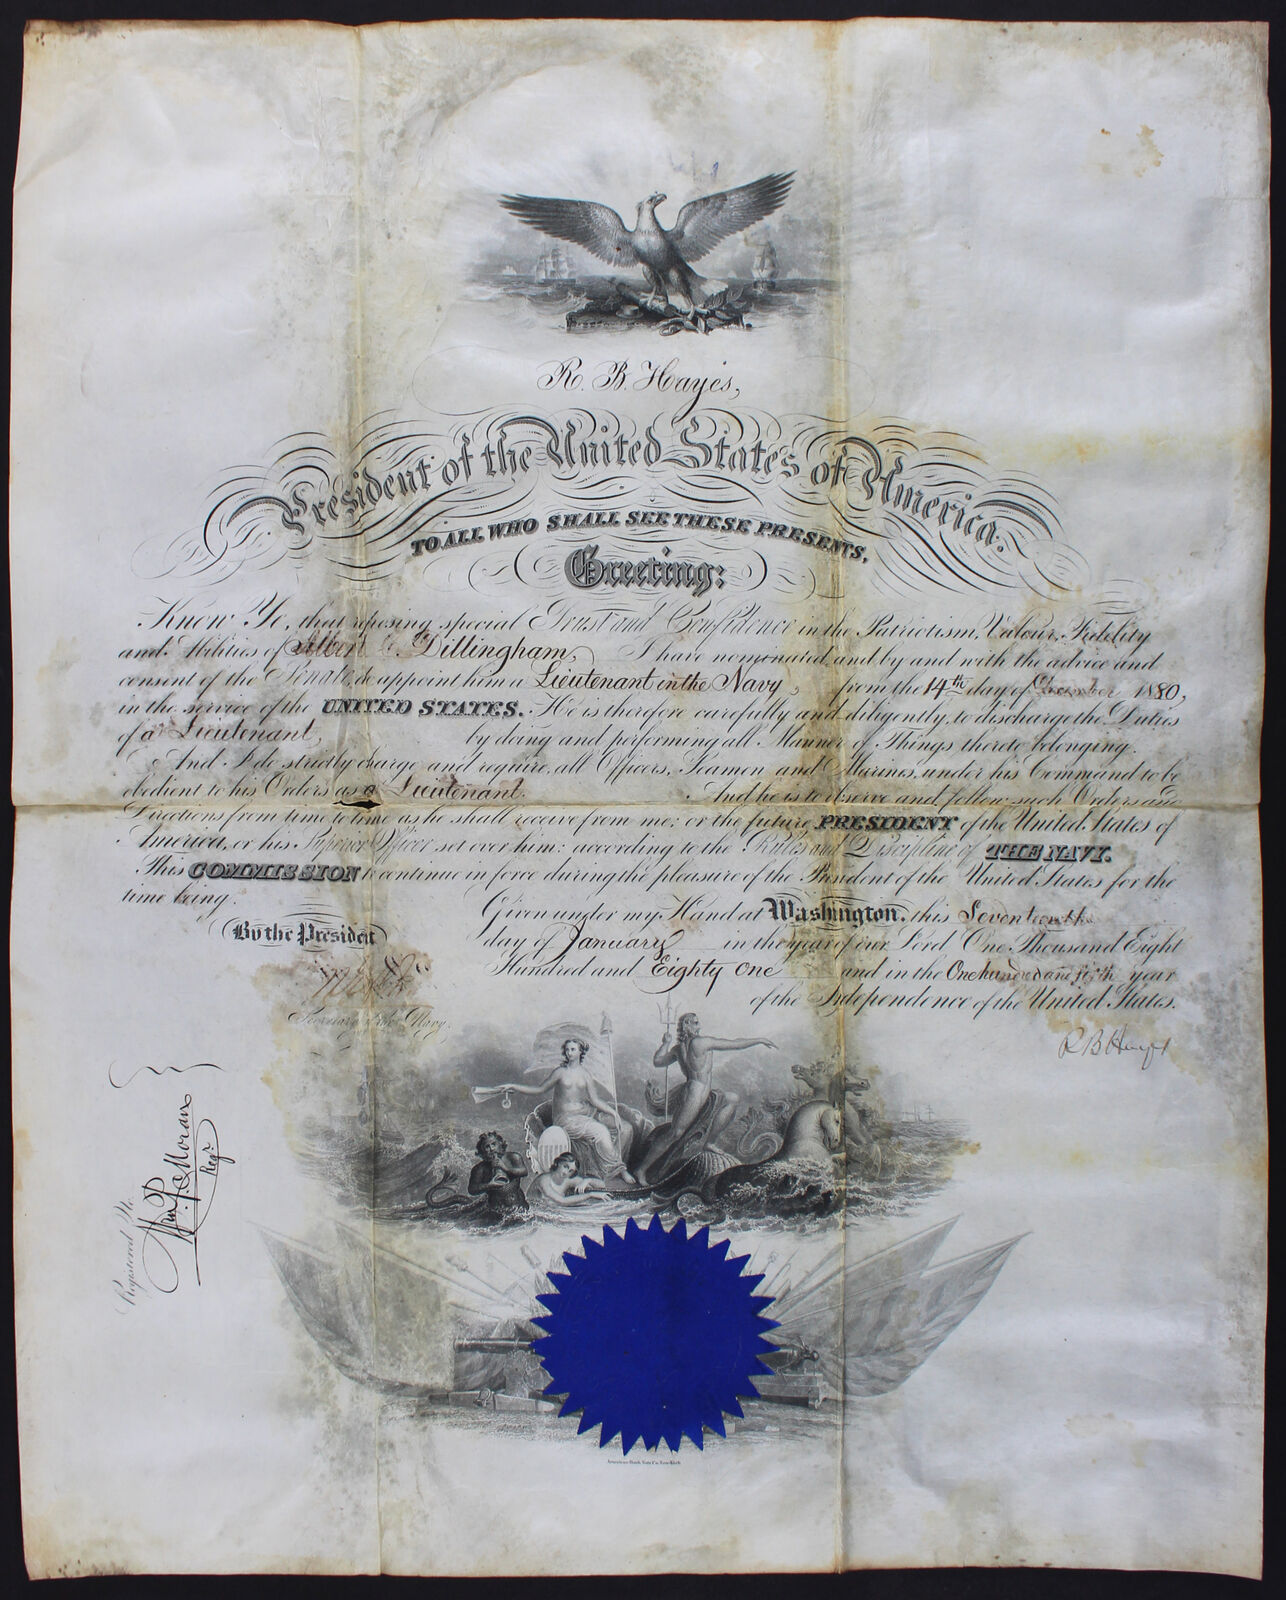 R. B. Hayes,
President of the United States of America.
TO ALL WHO SHALL SEE THESE PRESENTS,
Greeting:
Know Ye, that reposing special Trust and Confidence in the Patriotism, Valour, Fidelity
and Abilities of Albert C. Dillingham, I have nominated and by and with the advice and
consent of the Senate, do appoint him a Lieutenant in the Navy, from the 14th day of December 1880,
in the service of the UNITED STATES. He is therefore carefully and diligently to discharge the Duties
of a Lieutenant, by doing and performing all Manner of Things thereto belonging.
And I do strictly charge and require all Officers, Seamen and Marines under his Command to be
obedient to his Orders as a Lieutenant. And he is to observe and follow such Orders and
Directions from time to time as he shall receive from me; or the future PRESIDENT of the United States of
America, or his Superior Officer set over him: according to the Rules and Discipline of THE NAVY.
This COMMISSION to continue in force during the pleasure of the President of the United States for the
time being.
Given under my Hand at Washington, this Seventeenth
day of January in the year of our Lord One Thousand Eight
Hundred and Eighty One and in the One hundred and fifth year
of the Independence of the United States.
By the President
R B Hayes
Secretary of the Navy.
Registered No.
Wm. P. Moran
Regr.
American Bank Note Co. New York